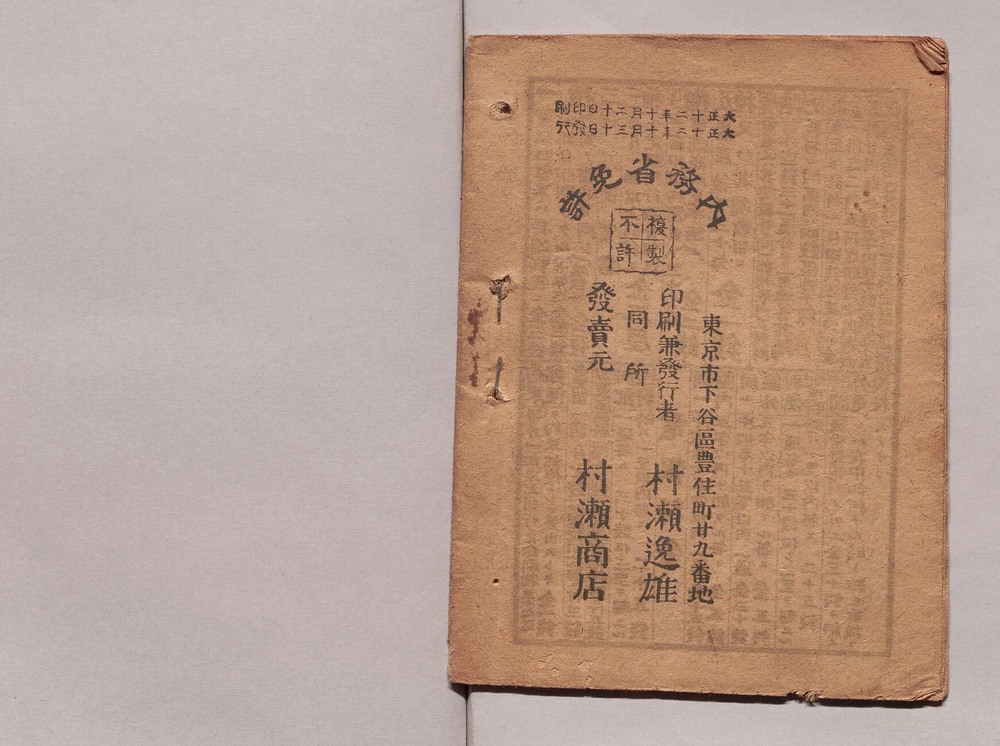 大正十二年十月二十日印刷
大正十二年十月三十日發行
内務省免許
複製
不許
東京市下谷區豊住町廿九番地
印刷兼發行者 村瀬逸雄
同所
發賣元 村瀬商店